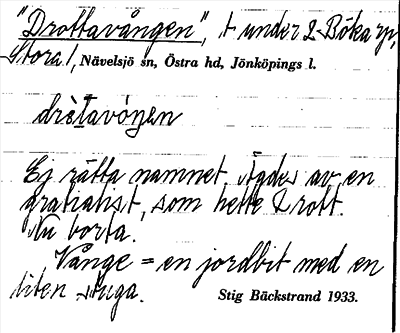 "Drottavången", t under 2 Bökarp,
Stora 1, Nävelsjö sn, Östra hd, Jönköpings l.
drètavóŋen
Ej rätta namnet. Ägdes av en
gratialist, som hette Drott.
Nu borta.
Vånge = en jordbit med en
liten stuga. Stig Bäckstrand 1933.